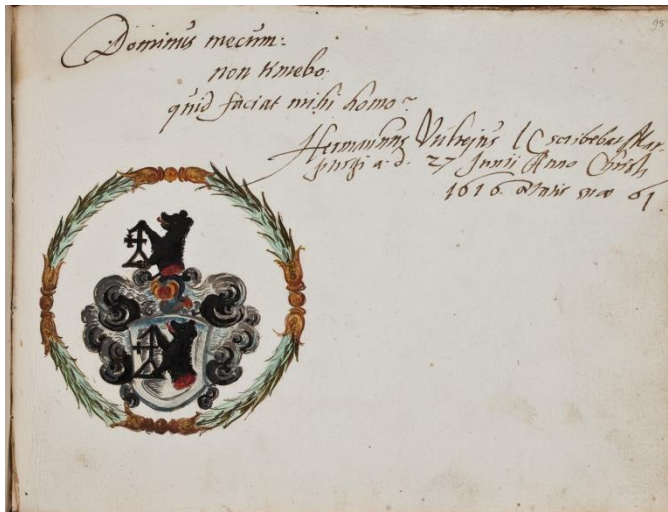 95
Dominus mecum:
non timebo
quid faciat mihi homo?
Hermannus Vulteius IC scribebat Mar-
purgi a. d. 27 Junii Anno Christi
1616. Ætatis suæ 61